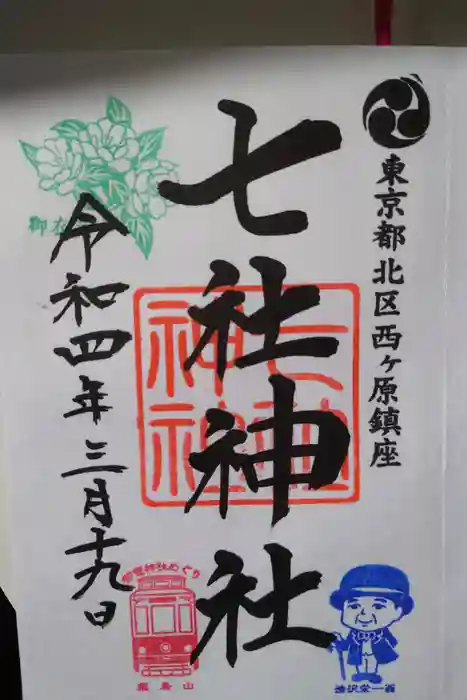 東京都北区西ヶ原鎮座
七社神社
七社
神社
令和四年三月十九日
飛鳥山
渋沢栄一翁